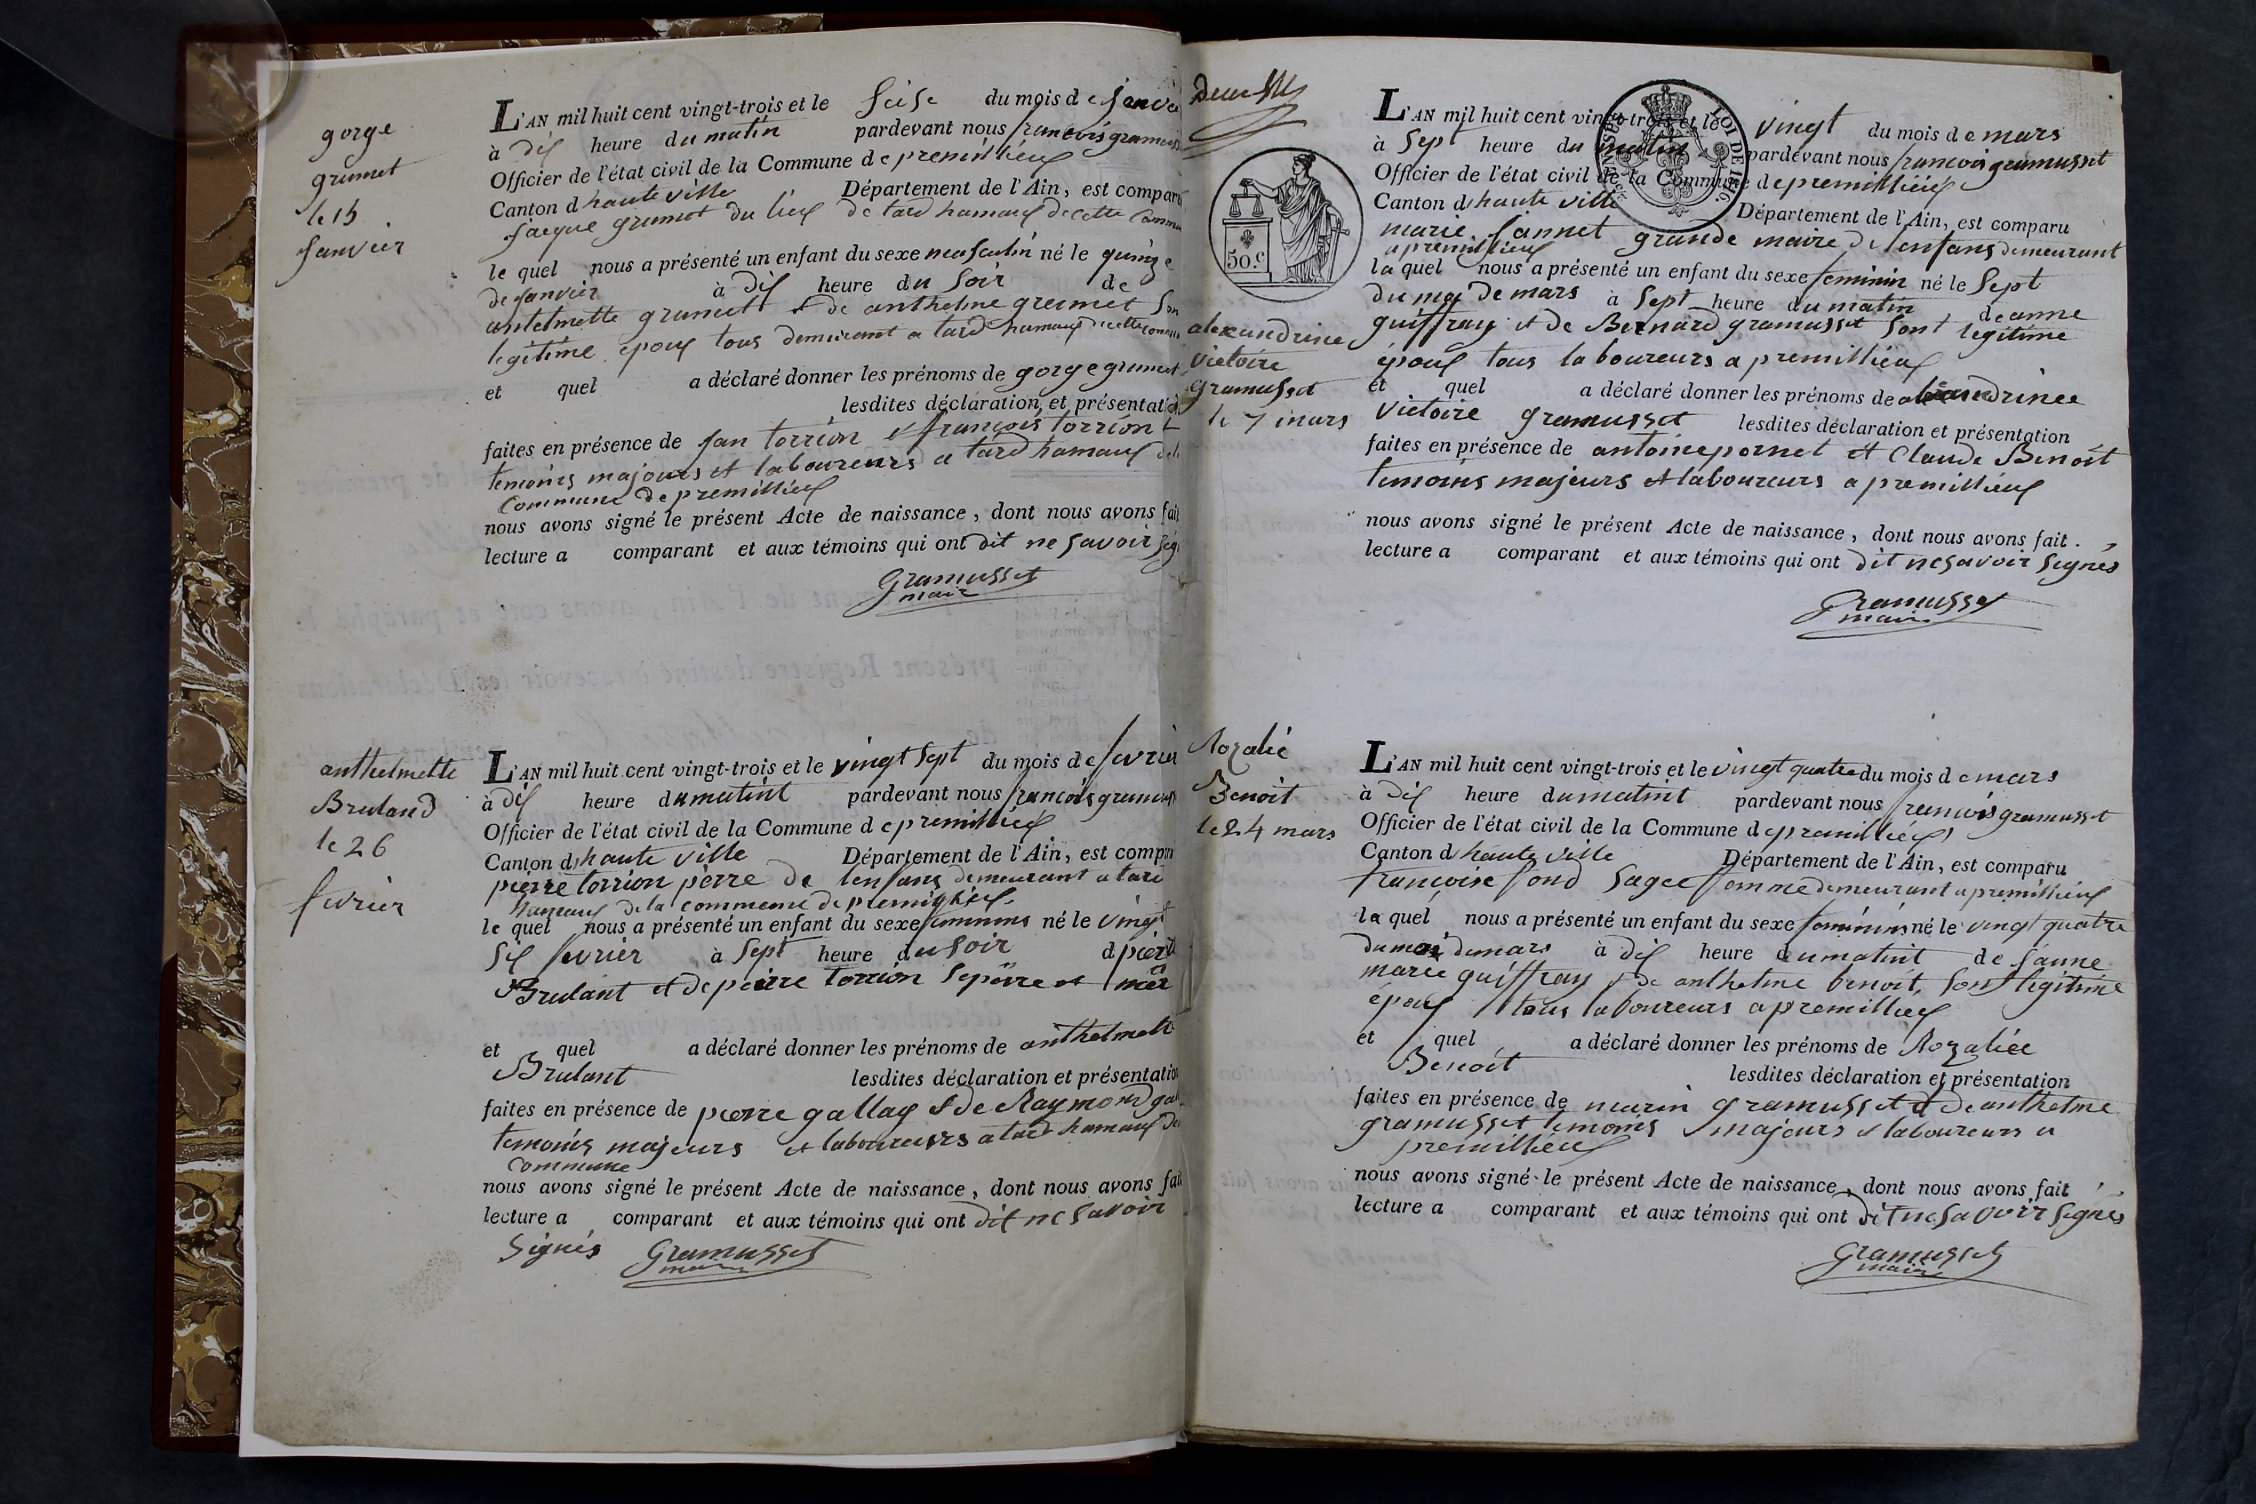 gorge
grumet
le 15
janvier
L'AN mil huit cent vingt-trois et le seise du mois de janvi
à dix heure du matin pardevant nous francois gramus
Officier de l'état civil de la Commune de premillieu
Canton d haute ville Département de l'Ain, est comparu
jacque grumet du lieu de tard hamaux de cette comm
le quel nous a présenté un enfant du sexe masculin né le quinze
de janvier à dix heure du soir de
antelmette grumett & de anthelme greumet son
legitime epoux tous demeurant a tard hamaux de cette commu
et quel a déclaré donner les prénoms de gorge grumet
lesdites déclaration et présentation
faites en présence de jan torrion & françois torrion
temoins majours et laboureurs a tard hamaux de la
commune de premillieu
nous avons signé le présent Acte de naissance, dont nous avons fait
lecture a comparant et aux témoins qui ont dit ne savoir sig
Gramusset
maire
anthelmette
Bruland
le 26
fevrier
L'AN mil huit cent vingt-trois et le vingt sept du mois de fevrier
à dix heure du matint pardevant nous francois gramus
Officier de l'état civil de la Commune de premillieu
Canton d haute ville Département de l'Ain, est compar
pierre torrion pèrre de lenfans demeurant a tard
hamaux de la commune de premillieu
le quel nous a présenté un enfant du sexe feminins né le vingt
six fevrier à sept heure du soir d pierr
Brulant et de peirre torrion sepèrre et mer
et quel a déclaré donner les prénoms de anthelmett
Brulant lesdites déclaration et présentation
faites en présence de pierre gallay & de Raymond gal
temoins majeurs et laboureurs a tard hamaux de
commune
nous avons signé le présent Acte de naissance, dont nous avons fait
lecture a comparant et aux témoins qui ont dit ne savoir
signés Gramusset
maire
Deux
50.c
alexandrine
victoire
gramusset
le 7 mars
LOI DE 1816.
L'AN mil huit cent vingt-trois et le vingt du mois de mars
à sept heure du matin pardevant nous francois gramusset
Officier de l'état civil de la Commune de premillieu
Canton d haute ville Département de l'Ain, est comparu
marie jannet grande maire de lenfans demeurant
a premillieu
la quel nous a présenté un enfant du sexe feminin né le sept
du moi de mars à sept heure du matin de anne
guiffray et de Bernard gramusset sont legitime
époux tous laboureurs a premillieu
et quel a déclaré donner les prénoms de alexandrinee
victoire gramusset lesdites déclaration et présentation
faites en présence de antoine pornet et Claude Benoit
temoins majeurs et laboureurs a premillieu
nous avons signé le présent Acte de naissance, dont nous avons fait
lecture a comparant et aux témoins qui ont dit ne savoir signés
Gramusset
maire
Rozalié
Benoit
le 24 mars
L'AN mil huit cent vingt-trois et le vingt quatre du mois de mars
à dix heure du matint pardevant nous francois gramusset
Officier de l'état civil de la Commune de premillieu
Canton d haute ville Département de l'Ain, est comparu
francoise fond sagee femme demeurant a premillieu
la quel nous a présenté un enfant du sexe feminins né le vingt quatre
du moi de mars à dix heure du matint de janne
marie guiffray & de anthelme benoit, son legitime
époux tous laboureurs a premillieu
et quel a déclaré donner les prénoms de Rozaliee
Benoit lesdites déclaration et présentation
faites en présence de marin gramusset & de anthelme
gramusset temoins majeurs & laboureurs a
premillieu
nous avons signé le présent Acte de naissance, dont nous avons fait
lecture a comparant et aux témoins qui ont dit ne savoir signés
Gramusset
maire